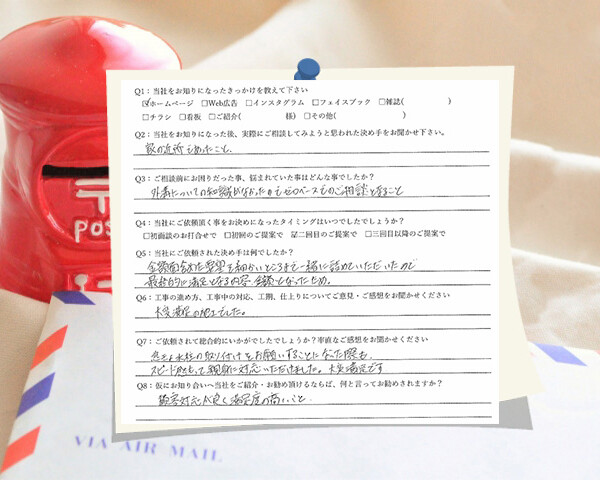 Q1：当社をお知りになったきっかけを教えて下さい
☑ホームページ □Web広告 □インスタグラム □フェイスブック □雑誌( )
□チラシ □看板 □ご紹介( 様) □その他( )
Q2：当社をお知りになった後、実際にご相談してみようと思われた決め手をお聞かせ下さい。
家の近所であったこと、
Q3：ご相談前にお困りだった事、悩まれていた事はどんな事でしたか？
外構についての知識がなかったのでゼロベースでのご相談となること
Q4：当社にご依頼頂く事をお決めになったタイミングはいつでしたでしょうか？
□初面談のお打合せで □初回のご提案で ☑二回目のご提案で □三回目以降のご提案で
Q5：当社にご依頼された決め手は何でしたか？
金額面含めた要望を細かいところまで一緒に詰めていただいたので
最終的に満足となる内容・金額となったため。
Q6：工事の進め方、工事中の対応、工期、仕上りについてご意見・ご感想をお聞かせください
大変満足の施工でした。
Q7：ご依頼されて総合的にいかがでしたでしょうか？率直なご感想をお聞かせください
水栓の取り付けをお願いすることになった際も、
スピード感もって親身に対応いただけました。大変満足です
Q8：仮にお知り合いへ当社をご紹介・お勧め頂けるならば、何と言ってお勧めされますか？
顧客対応が良く満足度の高いこと。
POS
VIA AIR MAIL